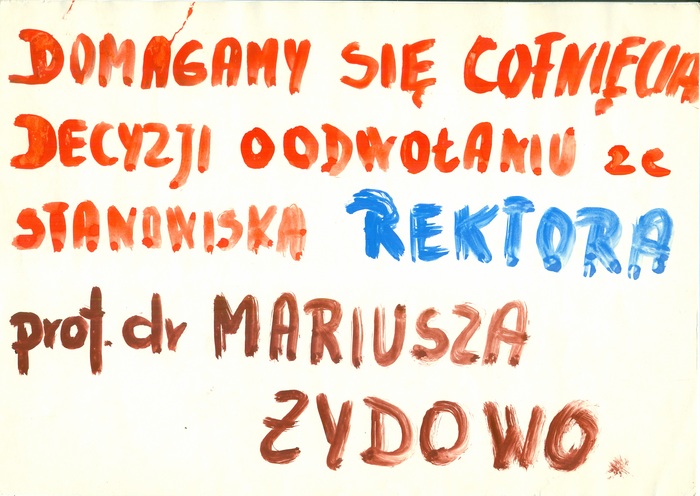 DOMAGAMY SIĘ COFNIĘCIA
DECYZJI O ODWOŁANIU ze
STANOWISKA REKTORA
prof. dr MARIUSZA
ZYDOWO.